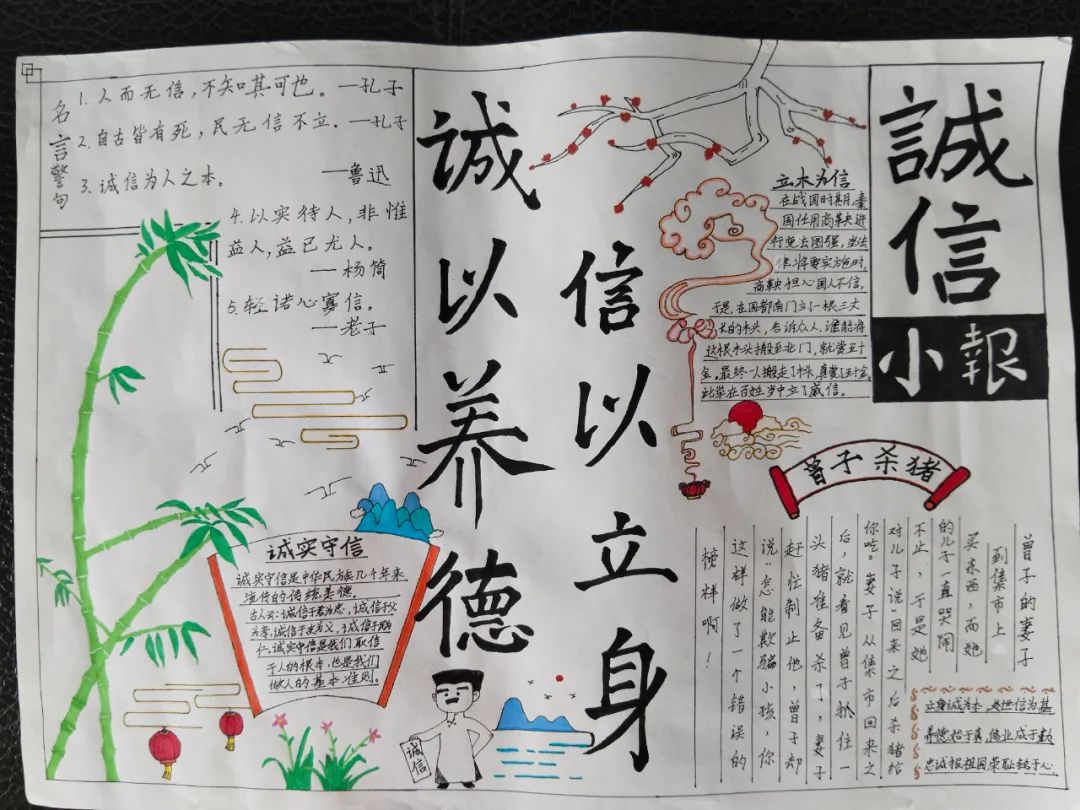 名言警句
1. 人而无信,不知其可也。—孔子
2. 自古皆有死,民无信不立. —孔子
3. 诚信为人之本。 —鲁迅
4. 以实待人,非惟
益人,益已尤人。
—杨简
5. 轻诺心寡信。
—老子
诚以养德
信以立身
誠信
小報
立木为信
在战国时期,秦
国任用商鞅进
行变法图强,当法
律将要实施时,
商鞅担心国人不信,
于是,在国都南门立了一根三丈
长的木头,告诉众人,谁能将
这根木头搬至北门,就赏五十
金。最终一人搬走了木头,真赏了五十金,
此举在百姓当中立了威信。
曾子杀猪
曾子的妻子
到集市上
买东西,而她
的儿子一直哭闹
不止,于是她
对儿子说"回来之后杀猪给
你吃。妻子从集市回来之
后,就看见曾子抓住一
头猪准备杀了,妻子
赶忙制止他,曾子却
说"怎能欺骗小孩,你
这样做了一个错误的
榜样啊!
诚实守信
诚实守信是中华民族几千年来
流传的传统美德。
古人云:诚信于君为忠,诚信于父
为孝,诚信于友为义,诚信于民为
仁。诚实守信是我们取信
于人的根本,也是我们
做人的基本准则。
诚信
立身诚为本,处世信为基
养德始于真,修业成于勤
忠诚报祖国荣耻铭于心